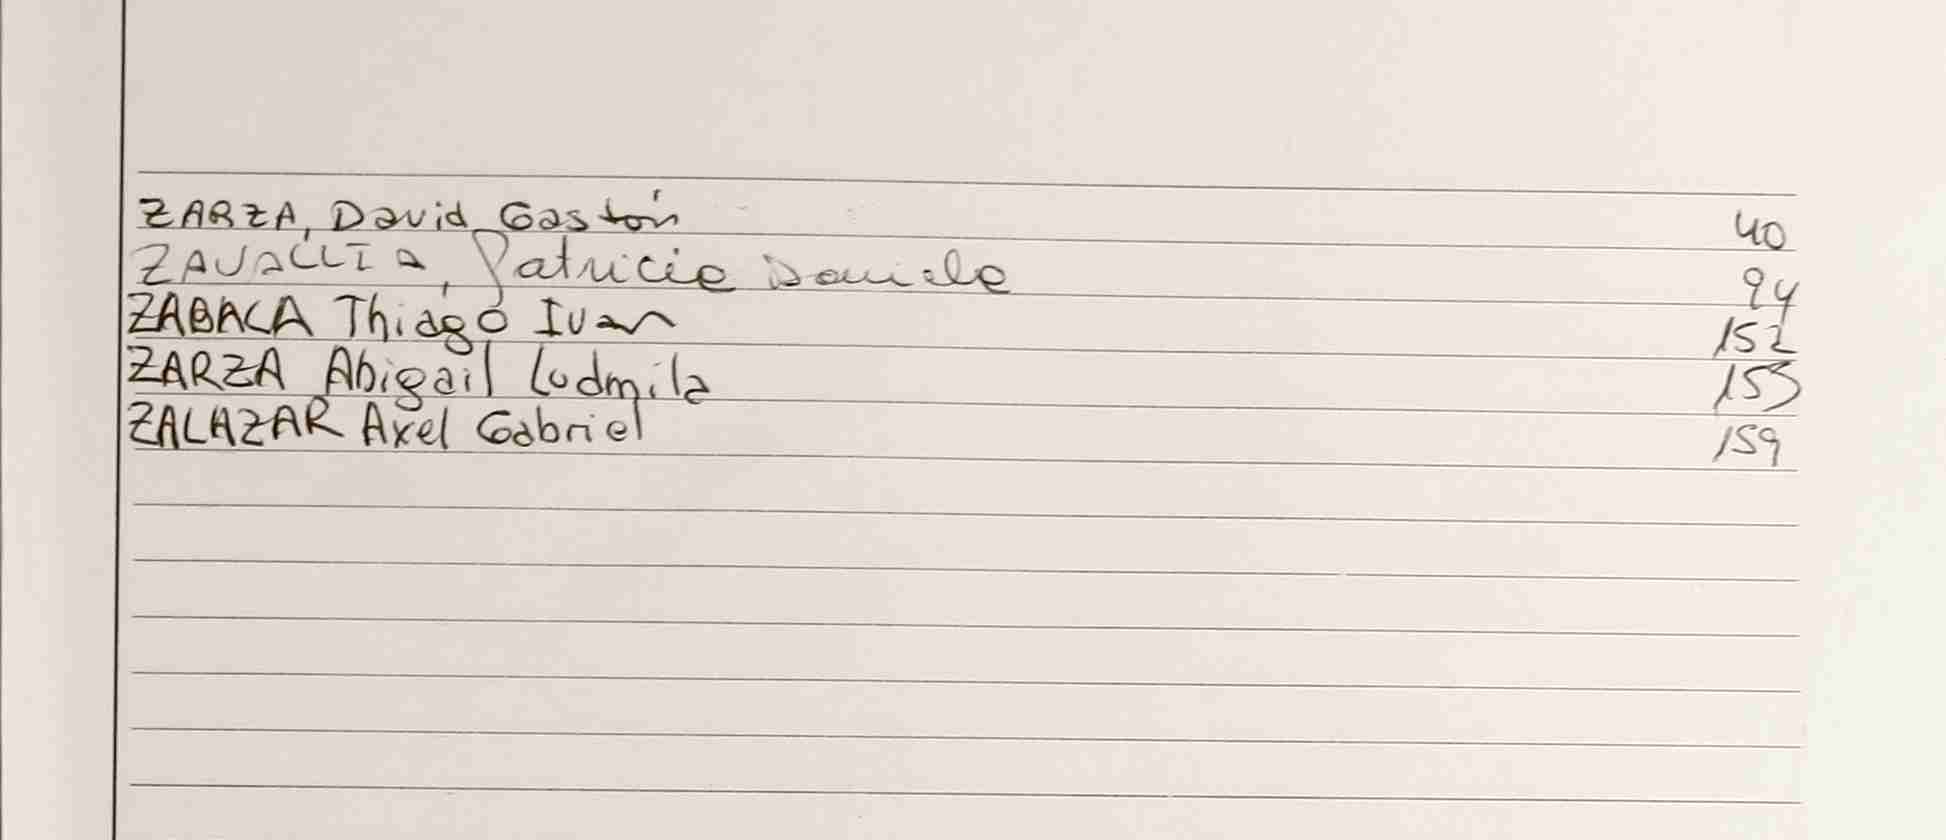 ZARZA, David Gastón 40
ZAVALLIA, Patricia Daniela 94
ZABACA Thiago Ivan 152
ZARZA Abigail Ludmila 153
ZALAZAR Axel Gabriel 159